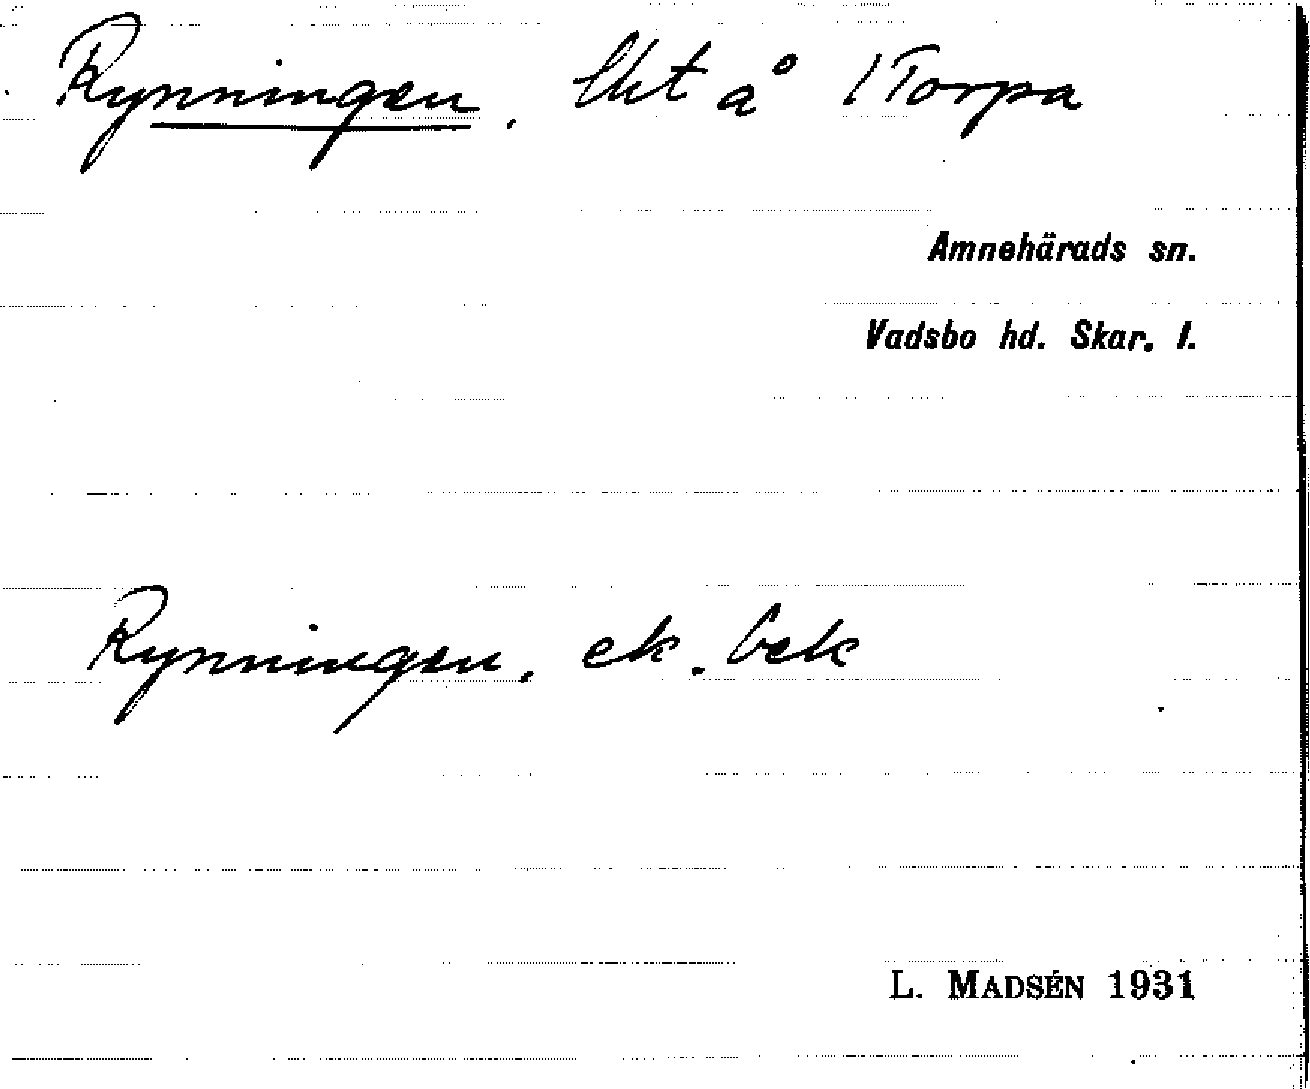 Rynningen. å /Torpa
Amnehärads sn.
Vadsbo hd. Skar. l.
Rynningen. ek. bek
L. MADSÉN 1931